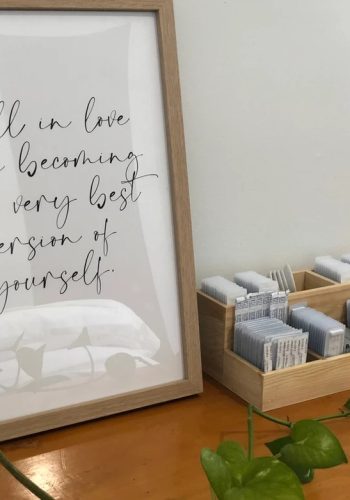 ll in love
becoming
very best
ersion of
yourself.